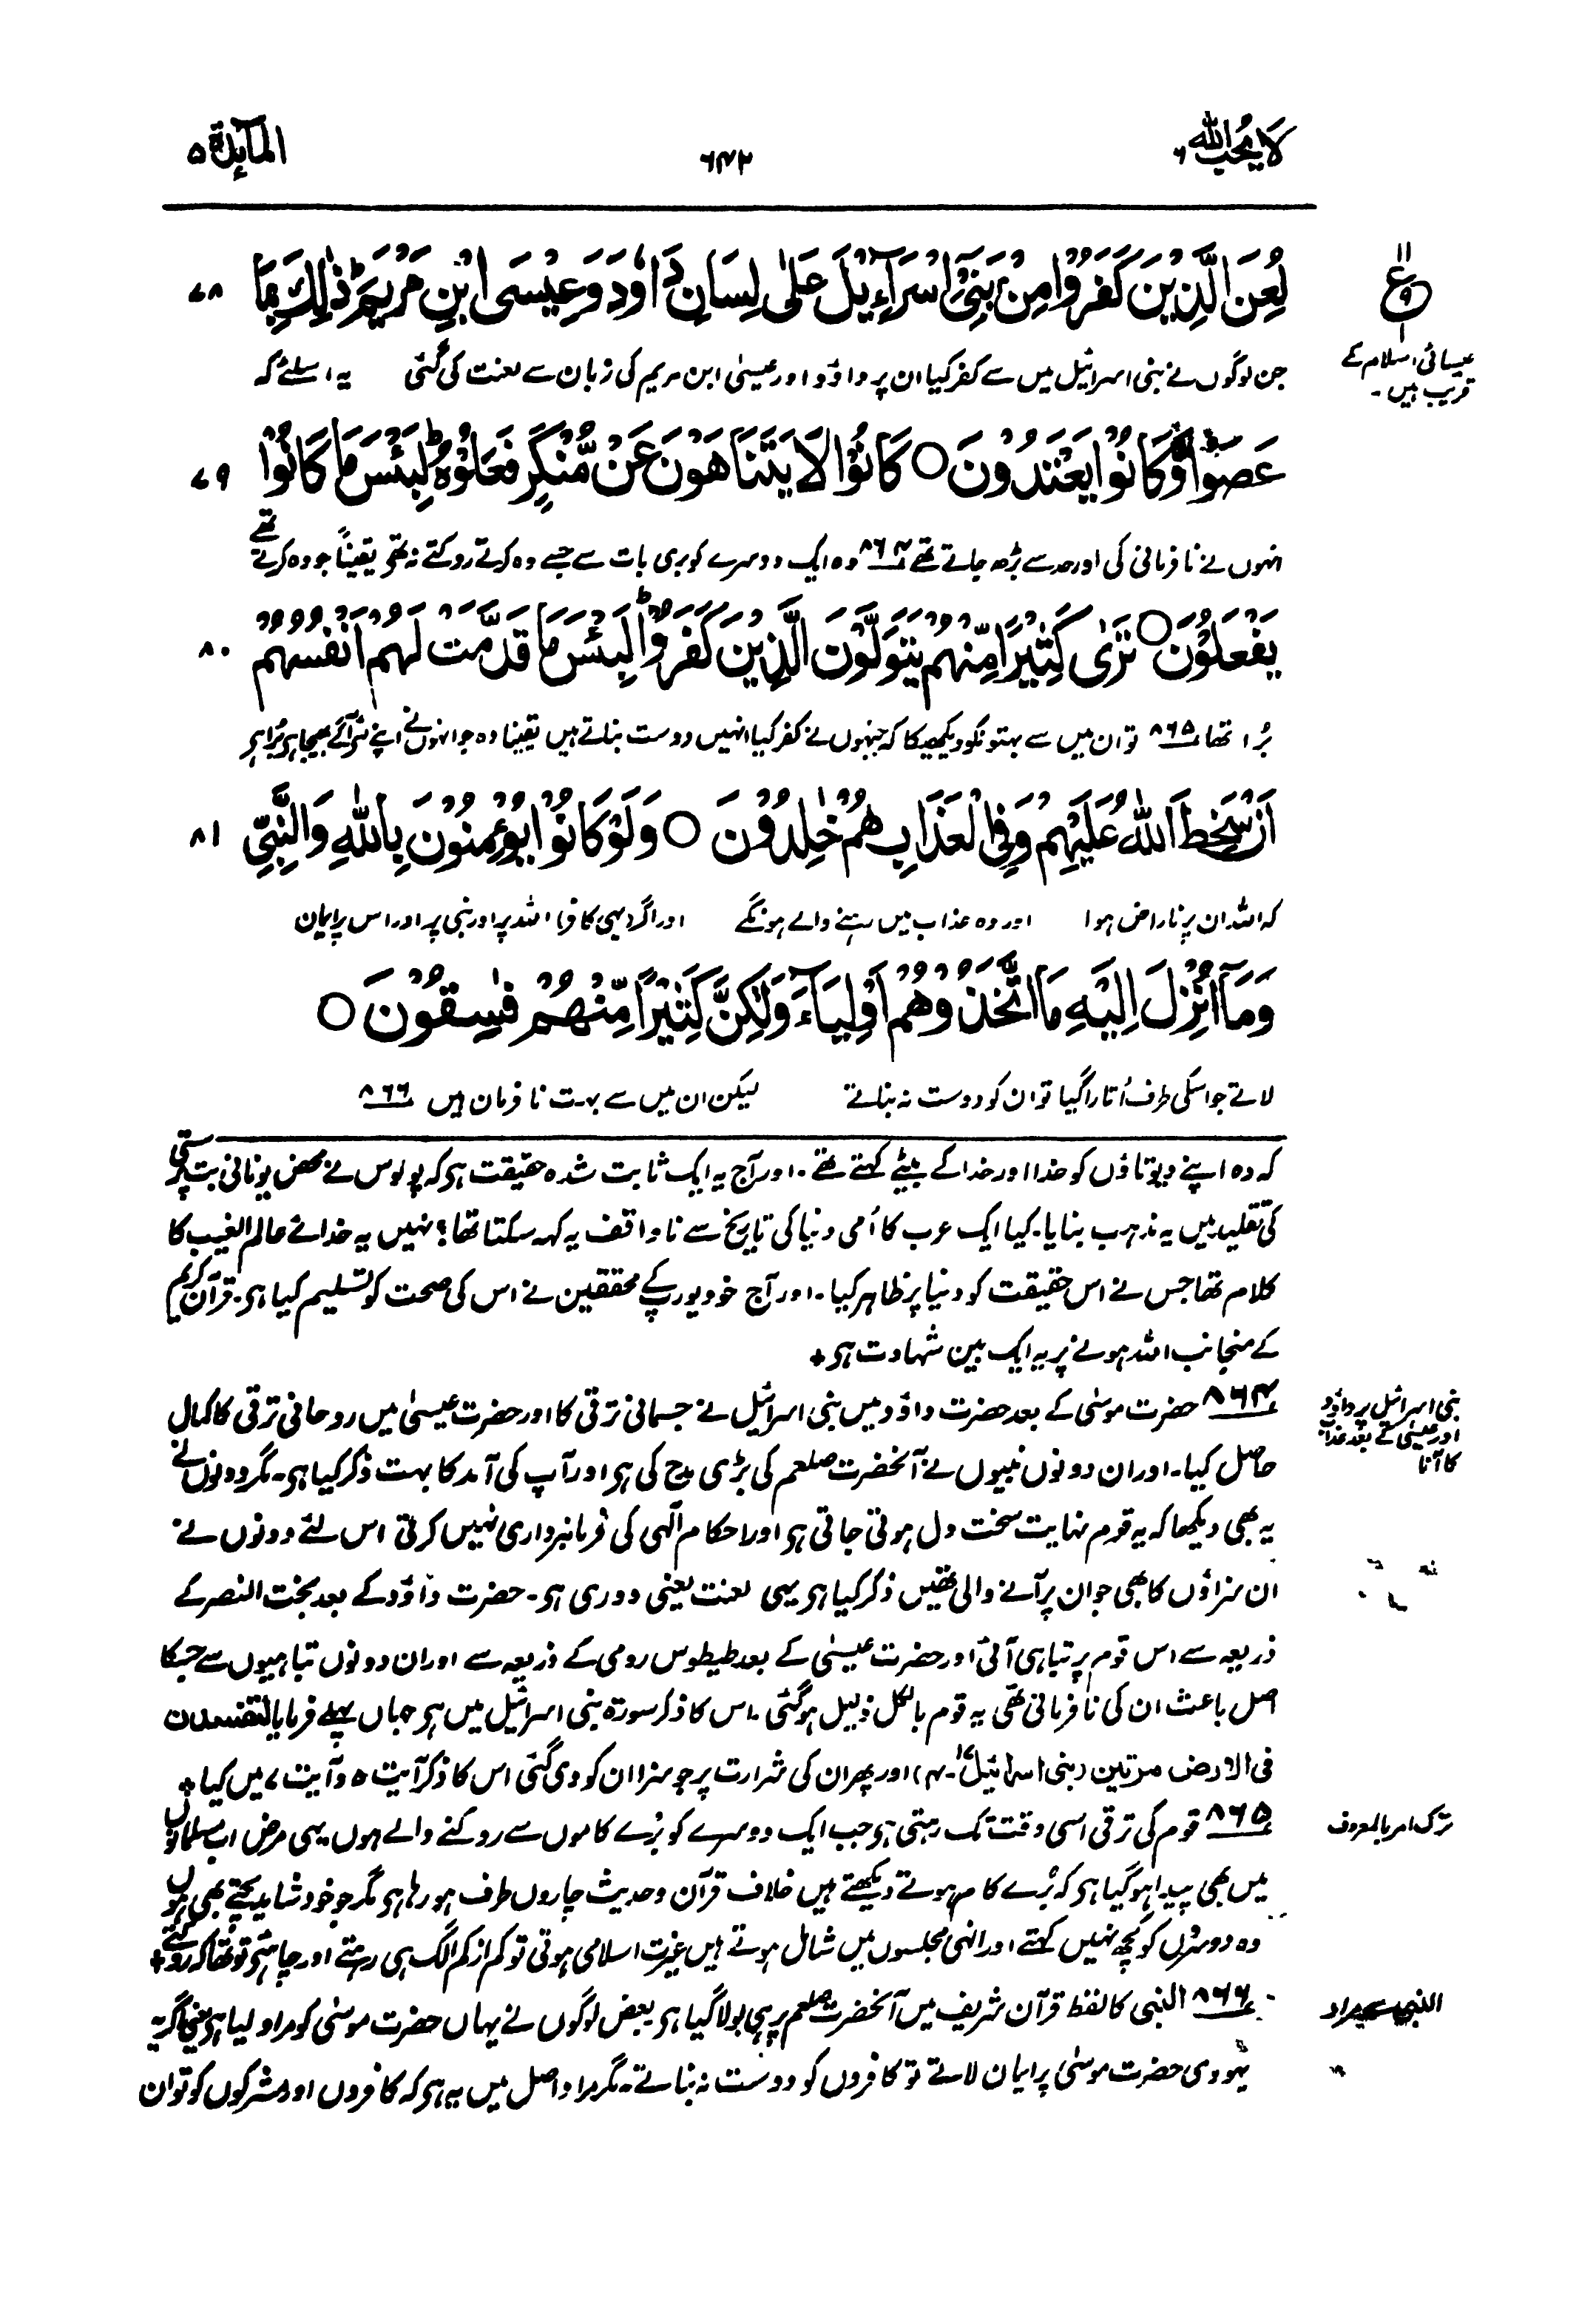 لَا يُحِبُّ اللهُ ٦
٦٤٢
المآئدة ٥
لُعِنَ الَّذِيْنَ كَفَرُوْا مِنْۢ بَنِيْٓ اِسْرَآءِيْلَ عَلٰى لِسَانِ دَاوٗدَ وَعِيْسَى ابْنِ مَرْيَمَ ؕ ذٰلِكَ بِمَا
٧٨
١١
ع
٩
١
عیسائی اسلام کے
قریب ہیں۔
جن لوگوں نے بنی اسرائیل میں سے کفر کیا ان پر داؤد اور عیسیٰ ابن مریم کی زبان سے لعنت کی گئی یہ اسلئے کہ
عَصَوْا وَّكَانُوْا يَعْتَدُوْنَ ○ كَانُوْا لَا يَتَنَاهَوْنَ عَنْ مُّنْكَرٍ فَعَلُوْهُ ؕ لَبِئْسَ مَا كَانُوْا
٧٩
انہوں نے نافرمانی کی اور حد سے بڑھ جاتے تھے ٨٦٤ وہ ایک دوسرے کو بری بات سے جسے وہ کرتے روکتے نہ تھے یقیناً جو وہ کرتے تھے
يَفْعَلُوْنَ ○ تَرٰى كَثِيْرًا مِّنْهُمْ يَتَوَلَّوْنَ الَّذِيْنَ كَفَرُوْا ؕ لَبِئْسَ مَا قَدَّمَتْ لَهُمْ اَنْفُسُهُمْ
٨٠
بُرا تھا ٨٦٥ تو ان میں سے بہتونکو دیکھیگا کہ جنہوں نے کفر کیا انہیں دوست بناتے ہیں یقیناً وہ جو انہوں نے اپنے لئے آگے بھیجا ہی بُرا ہی
اَنْ سَخِطَ اللهُ عَلَيْهِمْ وَفِي الْعَذَابِ هُمْ خٰلِدُوْنَ ○ وَلَوْ كَانُوْا يُؤْمِنُوْنَ بِاللهِ وَالنَّبِيِّ
٨١
کہ اللہ ان پر ناراض ہوا اور وہ عذاب میں رہنے والے ہونگے اور اگر یہی کافر اللہ پر اور نبی پر اور اس پر ایمان
وَمَآ اُنْزِلَ اِلَيْهِ مَا اتَّخَذُوْهُمْ اَوْلِيَآءَ وَلٰكِنَّ كَثِيْرًا مِّنْهُمْ فٰسِقُوْنَ ○
لاتے جو اسکی طرف اُتارا گیا تو ان کو دوست نہ بناتے لیکن ان میں سے بہت نافرمان ہیں ٨٦٦
کہ وہ اپنے دیوتاؤں کو خدا اور خدا کے بیٹے کہتے تھے۔ اور آج یہ ایک ثابت شدہ حقیقت ہی کہ پولوس نے محض یونانی بت پرستی
کی تقلید میں یہ مذہب بنایا۔ کیا ایک عرب کا اُمی دنیا کی تاریخ سے ناواقف یہ کہہ سکتا تھا؟ نہیں یہ خدائے عالم الغیب کا
کلام تھا جس نے اس حقیقت کو دنیا پر ظاہر کیا۔ اور آج خود یورپ کے محققین نے اس کی صحت کو تسلیم کیا ہی۔ قرآن کریم
کے منجانب اللہ ہونے پر یہ ایک بین شہادت ہی +
بنی اسرائیل پر داؤد
اور عیسیٰ کے بعد عذاب
کا آنا
٨٦٤ حضرت موسٰی کے بعد حضرت داؤد میں بنی اسرائیل نے جسمانی ترقی کا اور حضرت عیسیٰ میں روحانی ترقی کا کمال
حاصل کیا۔ اور ان دونوں نبیوں نے آنحضرت صلعم کی بڑی مدح کی ہی اور آپ کی آمد کا بہت ذکر کیا ہی۔ مگر دونوں نے
یہ بھی دیکھا کہ یہ قوم نہایت سخت دل ہوتی جاتی ہی اور احکام آلٰہی کی فرمانبرداری نہیں کرتی اس لئے دونوں نے
ان سزاؤں کا بھی جو ان پر آنے والی تھیں ذکر کیا ہی یہی لعنت یعنی دوری ہی۔ حضرت داؤد کے بعد بخت النصر کے
ذریعہ سے اس قوم پر تباہی آئی اور حضرت عیسیٰ کے بعد طیطوس رومی کے ذریعہ سے اور ان دونوں تباہیوں سے جسکا
اصل باعث ان کی نافرمانی تھی یہ قوم بالکل ذلیل ہوگئی۔ اس کا ذکر سورۃ بنی اسرائیل میں ہی جہاں پہلے فرمایا لتفسدن
فی الارض مرتین (بنی اسرائیل ١٧-٤) اور پھر ان کی شرارت پر جو سزا ان کو دی گئی اس کا ذکر آیت ٥ و آیت ٧ میں کیا +
ترک امر بالمعروف
٨٦٥ قوم کی ترقی اسی وقت تک رہتی ہی جب ایک دوسرے کو بُرے کاموں سے روکنے والے ہوں یہی مرض اب مسلمانوں
میں بھی پیدا ہوگیا ہی کہ بُرے کام ہوتے دیکھتے ہیں خلاف قرآن وحدیث چاروں طرف ہو رہا ہی مگر جو خود شاید بچتے بھی ہوں
وہ دوسروں کو کچھ نہیں کہتے اور انہی مجلسوں میں شامل ہوتے ہیں غیرت اسلامی ہوتی تو کم از کم الگ ہی رہتے اور چاہئے تو تھا کہ روکتے +
النبی سے مراد
٨٦٦ النبی کا لفظ قرآن شریف میں آنحضرت صلعم پر ہی بولا گیا ہی بعض لوگوں نے یہاں حضرت موسٰی کو مراد لیا ہی یعنی اگر یہ
یہودی حضرت موسٰی پر ایمان لاتے تو کافروں کو دوست نہ بناتے۔ مگر مراد اصل میں یہ ہی کہ کافروں اور مشرکوں کو تو ان